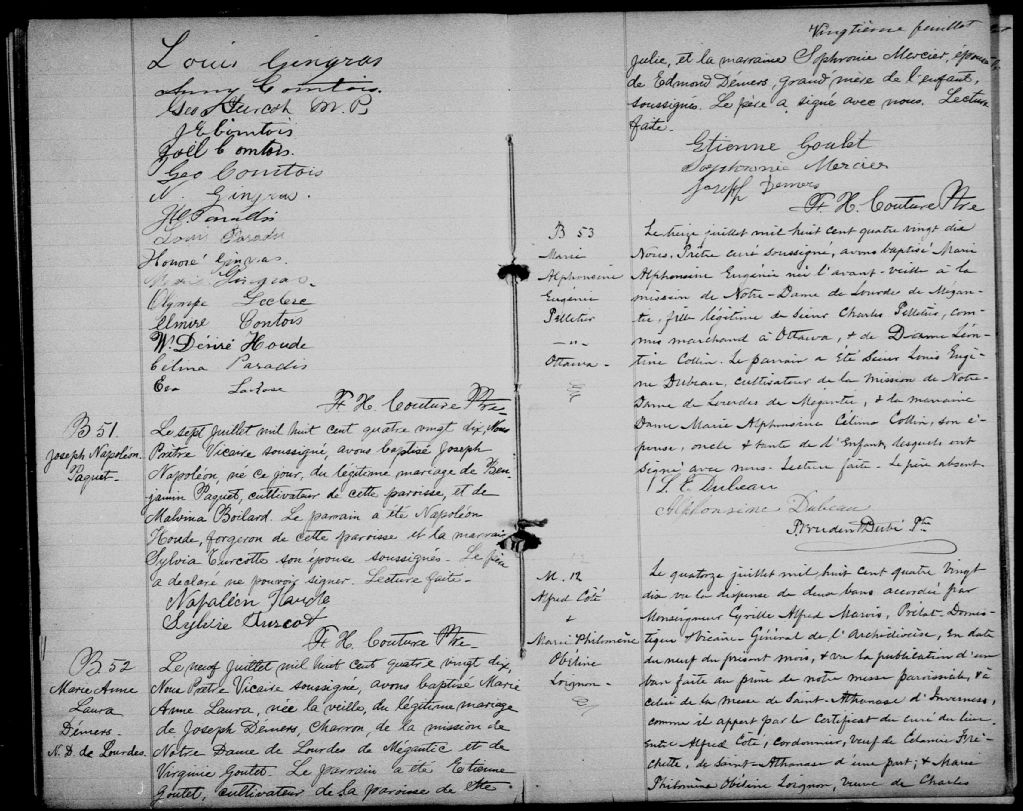 Louis Gingras
Anny Comtois.
Geo Turcot M.P.
J E Comtois
Joël Comtois.
Geo Comtois
N. Gingras.
Louis Paradis
Honoré Gingras.
Gingras.
Olympe Leclerc
Elmire Contois
Wm Désiré Houde
Célina Paradis
Eva LaRose
Ft. H. Couture Ptre
B 51.
Joseph Napoléon
Paquet
Le sept Juillet mil huit cent quatre vingt dix, Nous
Prêtre Vicaire soussigné, avons baptisé Joseph
Napoléon, né ce jour, du légitime mariage de Ben-
jamin Paquet, cultivateur de cette paroisse, et de
Malvina Boilard. Le parrain a été Napoléon
Houde, forgeron de cette paroisse et la marraine
Sylvia Turcotte son épouse soussignés. Le père
a déclaré ne pouvoir signer. Lecture faite.
Napoléon Houde
Sylvie Turcot
Ft. H. Couture Ptre
B 52
Marie Anne
Laura
Démers.
N. D. de Lourdes.
Le neuf Juillet mil huit cent quatre vingt dix,
Nous Prêtre Vicaire soussigné, avons baptisé Marie
Anne Laura, née la veille, du légitime mariage
de Joseph Démers, Charron, de la mission de
Notre Dame de Lourdes de Mégantic et de
Virginie Goulet. Le parrain a été Etienne
Goulet, cultivateur de la paroisse de Ste
Vingtième feuillet
Julie, et la marraine Sophronie Mercier, épouse
de Edmond Démers, grand'mère de l'enfant,
soussignés. Le père a signé avec nous. Lecture
faite.
Etienne Goulet
Sophronie Mercier
Joseph Demers
Ft. H. Couture Ptre
B 53
Marie
Alphonsine
Eugénie
Pelletier
— " —
Ottawa.
Le treize juillet mil huit cent quatre vingt dix
Nous, Prêtre curé soussigné, avons baptisé Marie
Alphonsine Eugénie née l'avant-veille à la
mission de Notre-Dame de Lourde de Mégan-
tic, fille légitime de Sieur Charles Pelletier, com-
mis marchand à Ottawa, & de Dame Léon-
tine Collin. Le parrain a été Sieur Louis Eugè-
ne Dubeau, cultivateur de la mission de Notre-
Dame de Lourdes de Mégantic, & la marraine
Dame Marie Alphonsine Célima Collin, son é-
pouse, oncle & tante de l'Enfant, lesquels ont
signé avec nous. Lecture faite. Le père absent.
L. E. Dubeau
Alphonsine Dubeau
Prudent Dubé Ptre
M. 12
Alfred Coté
&
Marie Philomène
Obéline
Loignon
Le quatorze juillet mil huit cent quatre vingt
dix vu la dispense de deux bans accordée par
Monseigneur Cyrille Alfred Marois, Prélat-Domes-
tique & Vicaire-Général de l'Archidiocèse, en date
du neuf du présent mois, & vu la publication d'un
ban faite au prône de notre messe paroissiale, & à
celui de la messe de Saint-Athanase d'Inverness,
comme il appert par le certificat du curé du lieu
entre Alfred Coté, cordonnier, veuf de Célanie Fré-
chette, de Saint-Athanase d'une part; & Marie
Philomène Obéline Loignon, veuve de Charles